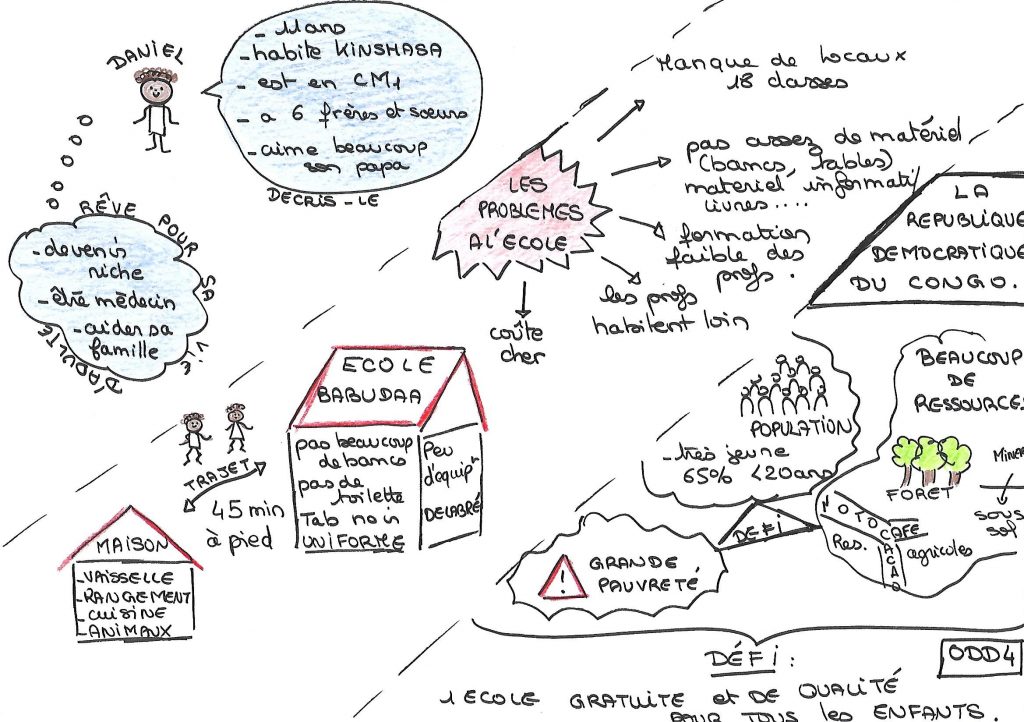 DANIEL
- 11 ans
- habite KINSHASA
- est en CM1
- a 6 frères et sœurs
- aime beaucoup
son papa
DECRIS-LE
RÊVE POUR SA VIE D'ADULTE
- devenir
riche
- être médecin
- aider sa
famille
LES
PROBLEMES
A L'ECOLE
Manque de locaux
18 classes
pas assez de matériel
(bancs, tables)
materiel informati
livres....
formation
faible des
profs.
les profs
habitent loin
coûte
cher
ECOLE
BABUDAA
pas beaucoup
de bancs
pas de
toilette
Tab noir
UNIFORME
Peu
d'equipt
DELABRÉ
TRAJET
45 min
à pied
MAISON
- VAISSELLE
- RANGEMENT
- CUISINE
- ANIMAUX
LA
REPUBLIQUE
DEMOCRATIQUE
DU CONGO.
POPULATION
- très jeune
65% <20ans
BEAUCOUP
DE
RESSOURCES
FORET
MINER
SOUS
sol
Res.
CAFE
CACAO
agricoles
DEFI
GRANDE
PAUVRETÉ
DÉFI :
ODD4
1 ECOLE GRATUITE et DE QUALITÉ
POUR TOUS les ENFANTS.